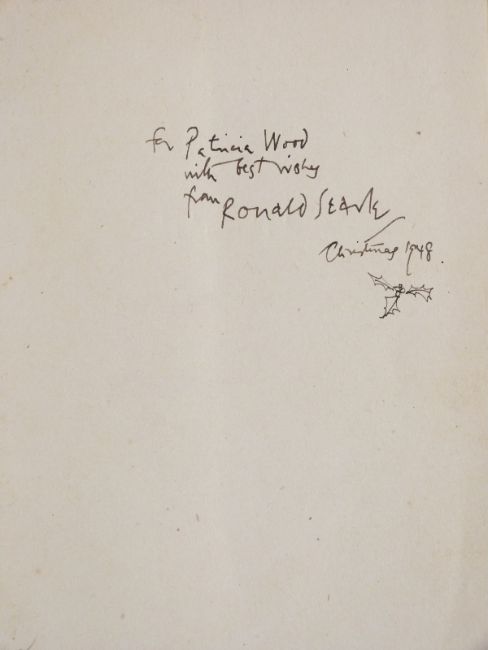 for Patricia Wood
with best wishes
from Ronald Searle
Christmas 1948.